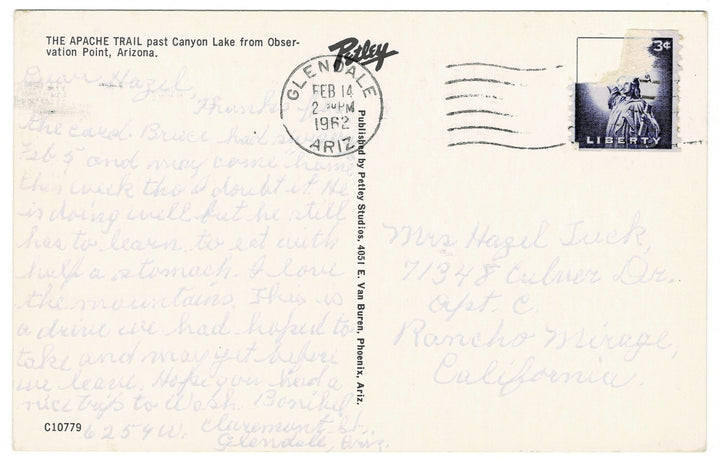 THE APACHE TRAIL past Canyon Lake from Obser-
vation Point, Arizona.
Petley
GLENDALE
FEB 14
2 PM
1962
ARIZ
3¢
LIBERTY
Dear Hazel,
Thanks for
the card. Bruce had surgery
Feb 5 and may come home
this week tho I doubt it. He
is doing well but he still
has to learn to eat with
half a stomach. I love
the mountains. This is
a drive we had hoped to
take and may yet before
we leave. Hope you had a
nice trip to Wash.
6254 W. Claremont St.,
Glendale, Ariz.
Published by Petley Studios, 4051 E. Van Buren, Phoenix, Ariz.
Mrs Hazel Tuck,
71348 Culver Dr.
Apt. C.
Rancho Mirage,
California.
C10779